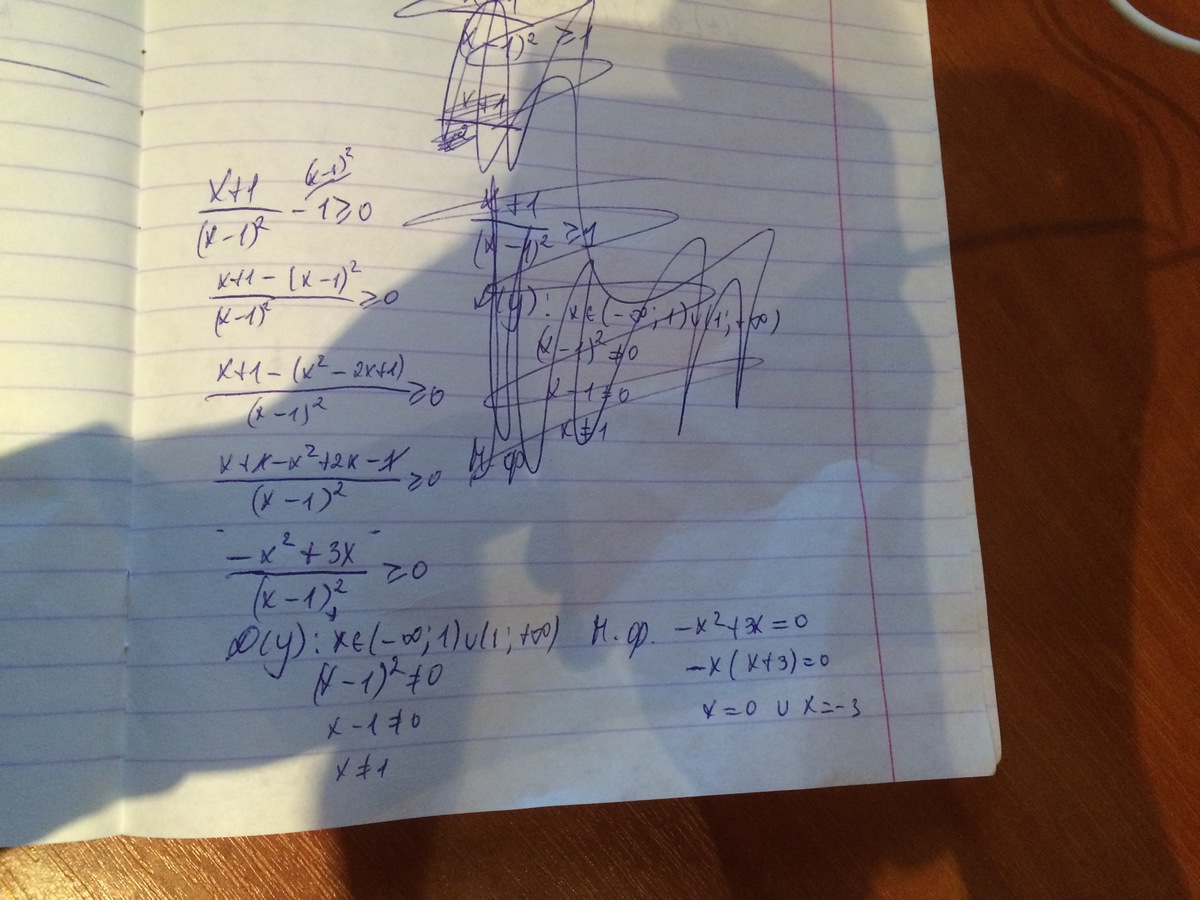 (x-1)² ≥ 1
x+1
(x-1)²
x+1 / (x-1)² - 1 ≥ 0
x+1 / (x-1)² ≥ 1
x+1 - (x-1)² / (x-1)² ≥ 0
D(y): x∈(-∞; 1)∪(1; +∞)
(x-1)² ≠ 0
x+1 - (x² - 2x+1) / (x-1)² ≥ 0
x-1 ≠ 0
x ≠ 1
x+1-x²+2x-1 / (x-1)² ≥ 0
Н. ф
-x² + 3x / (x-1)² ≥ 0
D(y): x∈(-∞; 1)∪(1; +∞)
(x-1)² ≠ 0
x-1 ≠ 0
x ≠ 1
Н. ф. -x²+3x=0
-x(x+3)=0
x=0 ∪ x=-3